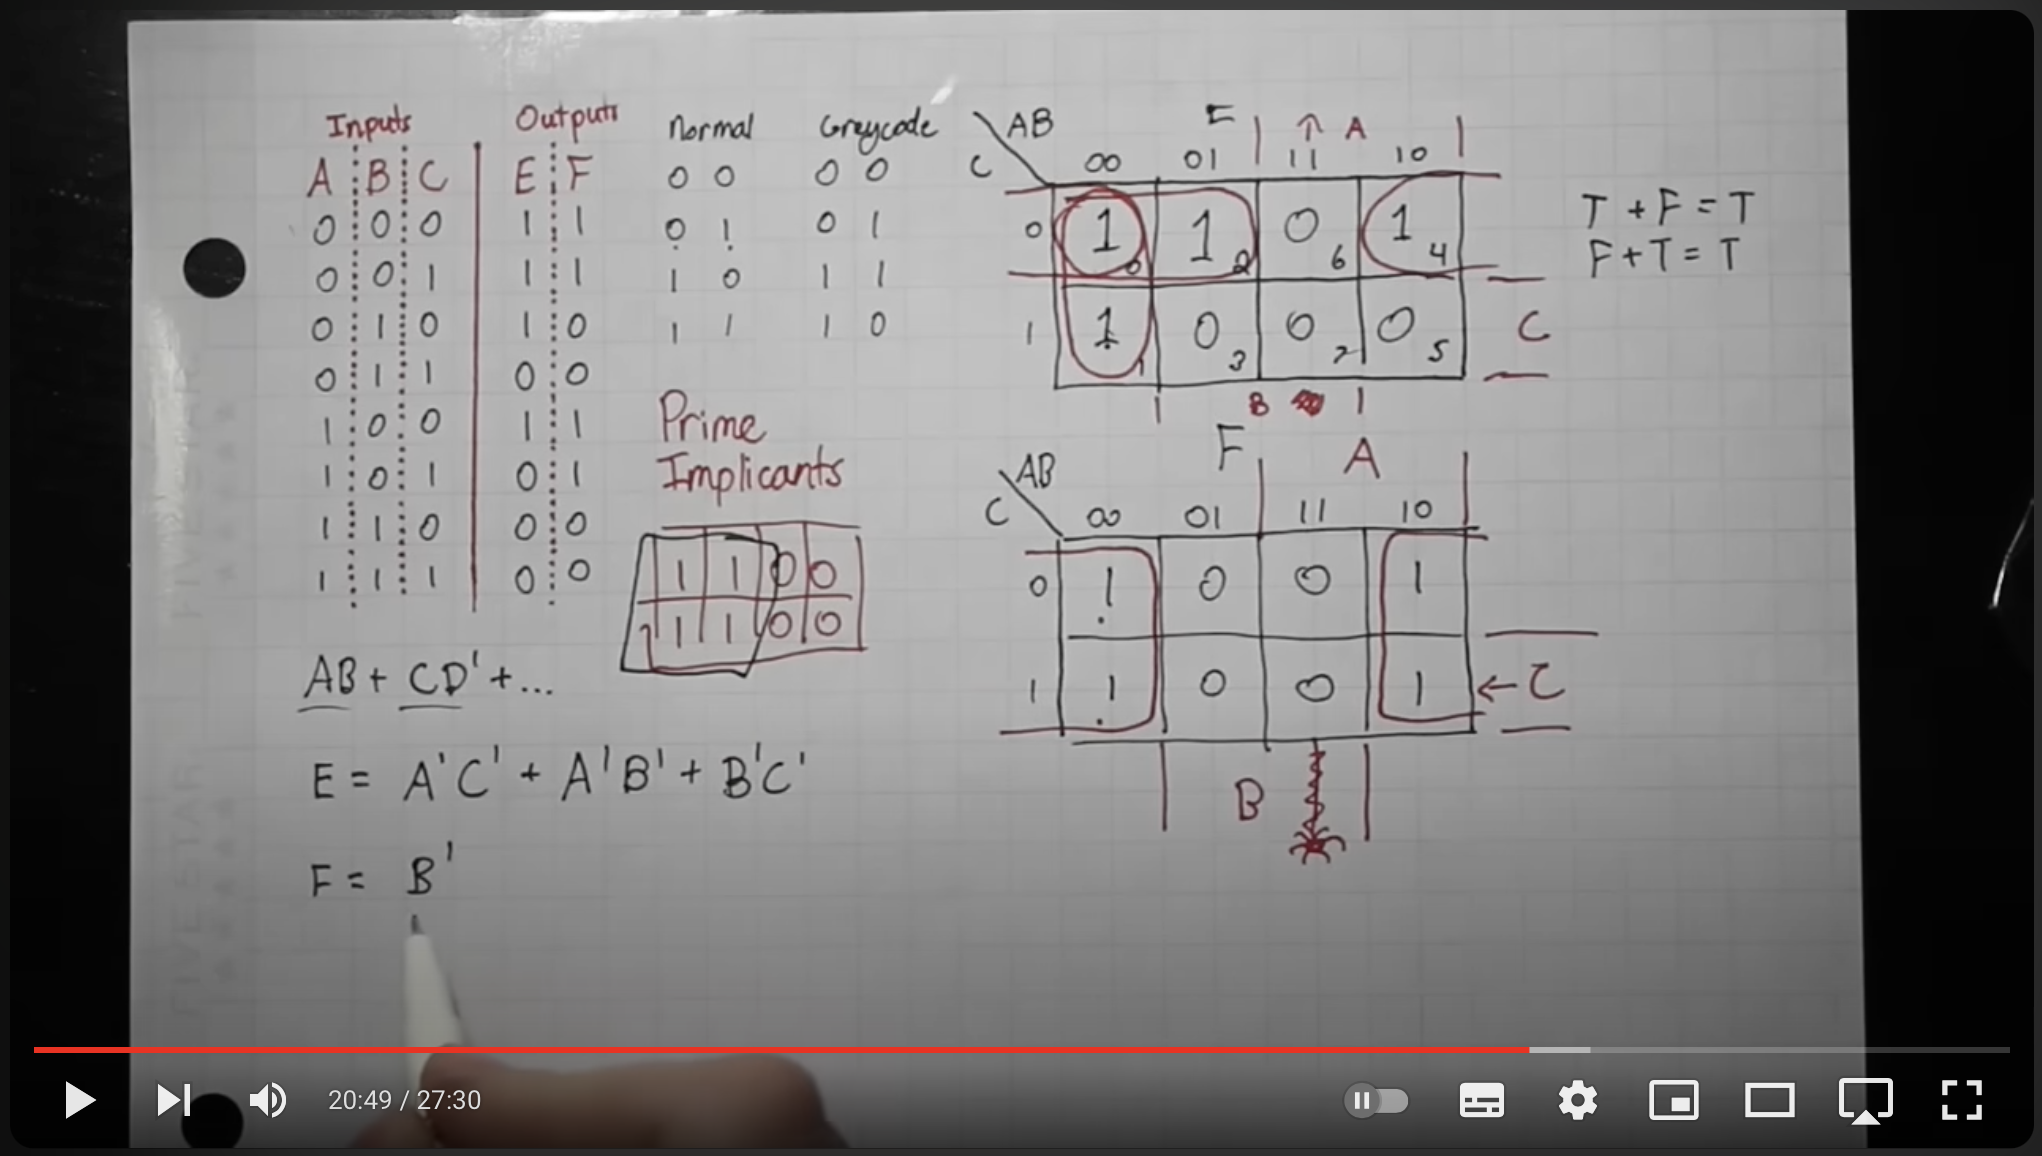 Inputs Outputs
A B C E F
0 0 0 1 1
0 0 1 1 1
0 1 0 1 0
0 1 1 0 0
1 0 0 1 1
1 0 1 0 1
1 1 0 0 0
1 1 1 0 0
Normal Greycode
0 0 0 0
0 1 0 1
1 0 1 1
1 1 1 0
Prime
Implicants
1 1 0 0
1 1 0 0
AB + CD' + ...
E = A'C' + A'B' + B'C'
F = B'
AB E ↑ A
C 00 01 11 10
0 1 0 1 2 0 6 1 4
1 1 1 0 3 0 7 0 5 C
B
T + F = T
F + T = T
AB F A
C 00 01 11 10
0 1 0 0 1
1 1 0 0 1 ← C
B
FIVE STAR
FIVE STAR
20:49 / 27:30